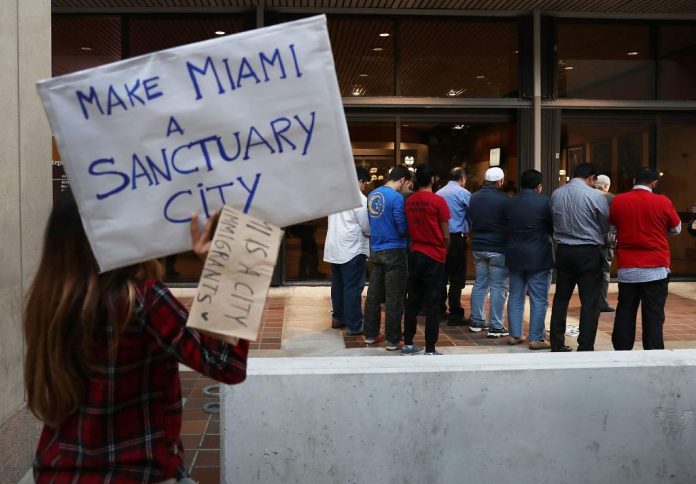 MAKE MIAMI
A
SANCTUARY
CITY
MI IS A CITY
IMMIGRANTS